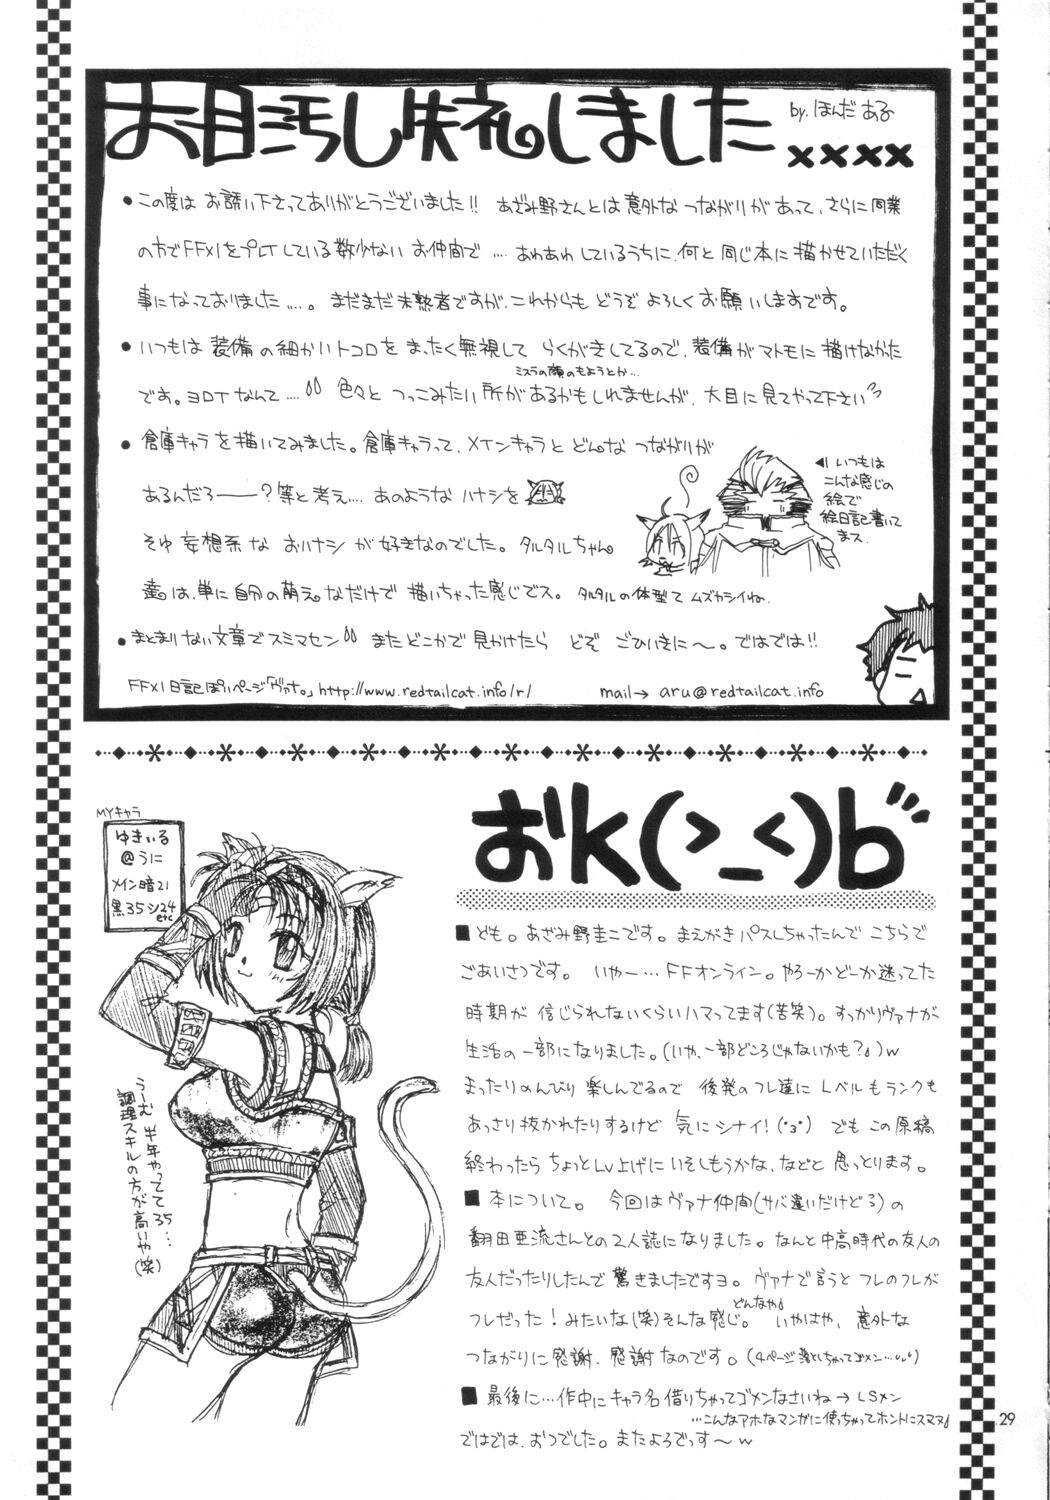 お目汚し失礼しました
by. ほんだ ある
××××
●この度は お誘い下さってありがとうございました!! あざみ野さんとは 意外な つながりがあって、さらに同業
の方でFFXIをプレイしている数少ない お仲間で .... あわあわ しているうちに、何と 同じ本に 描かせていただく
事になっておりました....。 まだまだ未熟者ですが、これからも どうぞ よろしく お願いしますです。
●いつもは 装備の細かいトコロを まったく無視して らくがきしてるので、装備がマトモに描けなかた
ミスラの顔のもようとか...
です。ヨロイなんて.... 色々と つっこみたい所があるかもしれませんが、大目に見てやって下さい
●倉庫キャラを描いてみました。倉庫キャラって、メインキャラと どんな つながりが
あるんだろ――?等と考え.... あのような ハナシを
そゆ 妄想系な おハナシ が好きなのでした。タルタルちゃん
達は、単に自分の萌え なだけで 描いちゃった感じでス。 タルタルの体型て ムズカシイね.
◀いつもは
こんな感じの
絵で
絵日記書いて
まス.
●まとまりない文章でスミマセン またどこかで見かけたら どぞ ごひいきに〜。ではでは!!
FFXI日記ぽいページ「ヴァナ。」http://www.redtailcat.info/r/ mail→ aru@redtailcat.info
おk(>_<)b
MYキャラ
ゆきいる
@うに
メイン暗21
黒35シ24
etc
うーむ 半年やってて35...
調理スキルの方が高いや(笑)
■ども。あざみ野圭二です。まえがきパスしちゃったんで こちらで
ごあいさつです。 いやー...FFオンライン。やろーかどーか迷ってた
時期が 信じられないくらいハマってます(苦笑)。すっかりヴァナが
生活の一部になりました。(いや、一部どころじゃないかも?♪)w
まったりのんびり 楽しんでるので 後発のフレ達に Lベルもランクも
あっさり抜かれたりするけど 気にシナイ!(・3・) でも この原稿
終わったら ちょっとLv上げに いそしもうかな、などと 思っとります。
■本について。 今回は ヴァナ仲間(サバ違いだけどろ)の
翻田亜流さんとの2人誌になりました。なんと 中高時代の友人の
友人だったりしたんで 驚きましたですヨ。ヴァナで言うと フレのフレが
フレだった!みたいな(笑)そんな感じ。 どんなや♪ いやはや、意外な
つながりに感謝、感謝なのです。(4ページ落としちゃってゴメン...)
■最後に...作中に キャラ名 借りちゃってゴメンなさいね → LSメン
...こんなアホなマンガに使っちゃってホントにスマヌ♪
ではでは、おつでした。またよろでっす〜w
29